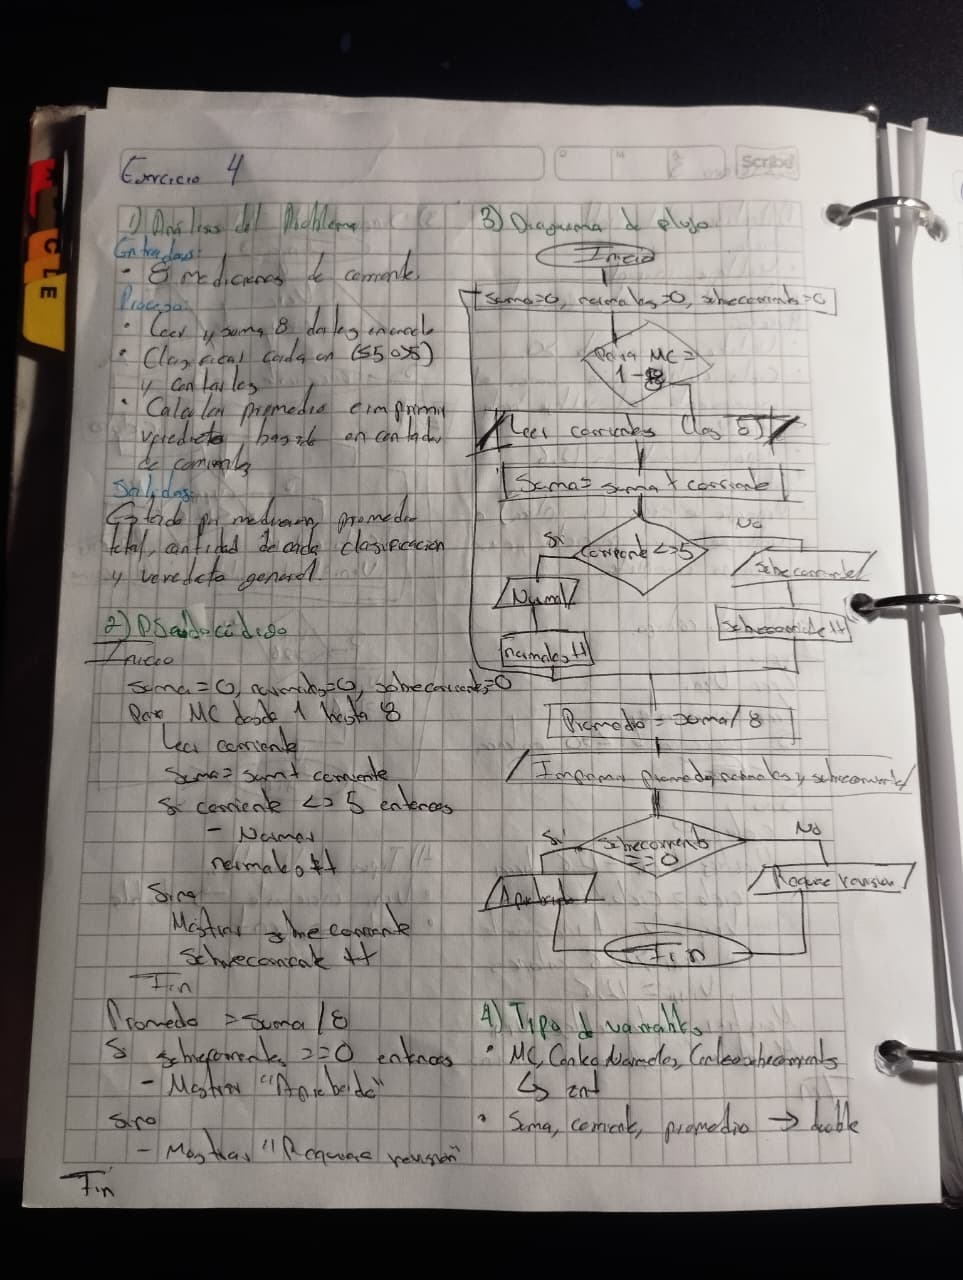 Ejercicio 4
Scribe
1) Análisis del Problema
Entradas:
- 8 mediciones de corriente.
Proceso:
• Leer y suma 8 datos
• Clasificar cada en (≤5 o >5)
y contarlos
• Calcular promedio e imprimir
veredicto basado en contador
de corrientes
Salidas:
Estado por medicion, promedio
total, cantidad de cada clasificacion
y veredicto general.
2) Pseudocódigo
Inicio
suma=0, normales=0, sobrecorrientes=0
Para MC desde 1 hasta 8
Leer corriente
Suma = suma + corriente
Si corriente <= 5 entonces
- Normal
normales ++
Sino
Mostrar sobrecorriente
Sobrecorriente ++
Fin
Promedio = suma / 8
Si sobrecorrientes ==0 entonces
- Mostrar "Aprobado"
sino
- Mostrar "Requiere revisión"
Fin
3) Diagrama de flujo
Inicio
suma=0, normales=0, sobrecorrientes=0
Para MC=
1-8
Leer corrientes (los 8)
Suma = suma + corriente
Si
Corriente <=5
No
Normal
Sobrecorriente
normales ++
Sobrecorriente ++
Promedio = suma / 8
Imprimir promedio, normales y sobrecorriente
Si
Sobrecorriente
==0
No
Aprobado
Requiere revision
Fin
4) Tipo de variables
• MC, Conteo Normales, Conteo sobrecorrientes
↳ int
• Suma, corriente, promedio → double